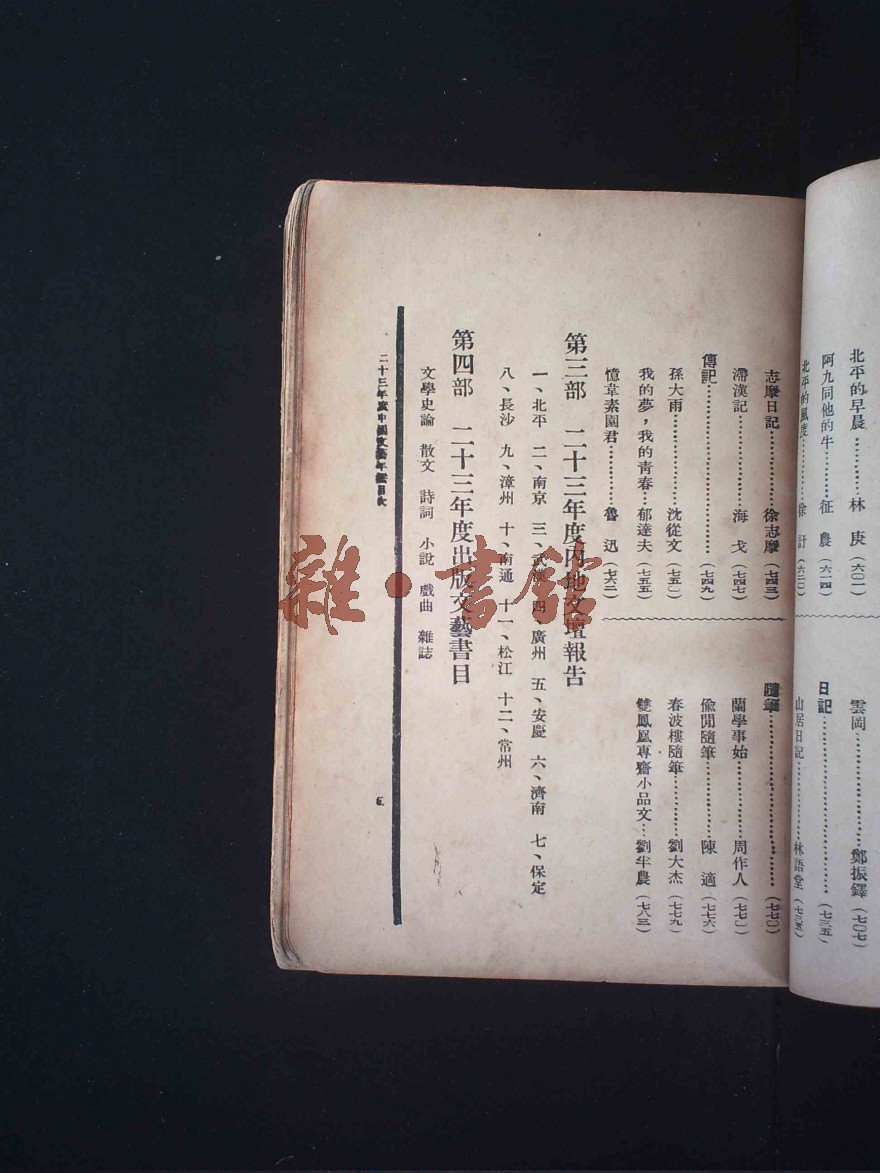 北平的早晨…………林 庚（六〇一）
阿九同他的牛………征 農（六一四）
北平的風度…………徐 訏（六二〇）
雲岡…………………鄭振鐸（七〇七）
日記…………………（七三五）
山居日記……………林語堂（七三五）
志摩日記……………徐志摩（七四三）
滯漢記………………海 戈（七四七）
傳記…………………（七四九）
孫大雨………………沈從文（七五〇）
我的夢，我的青春…郁達夫（七五五）
憶韋素園君…………魯 迅（七六二）
隨筆…………………（七七〇）
蘭學事始……………周作人（七七〇）
偸閒隨筆……………陳 適（七七六）
春波樓隨筆…………劉大杰（七七九）
雙鳳凰專齋小品文…劉半農（七八三）
第三部 二十三年度內地文壇報告
一、北平 二、南京 三、武漢 四、廣州 五、安慶 六、濟南 七、保定
八、長沙 九、漳州 十、南通 十一、松江 十二、常州
第四部 二十三年度出版文藝書目
文學史論 散文 詩詞 小說 戲曲 雜誌
二十三年度中國文藝年鑑目次
五
雜·書館